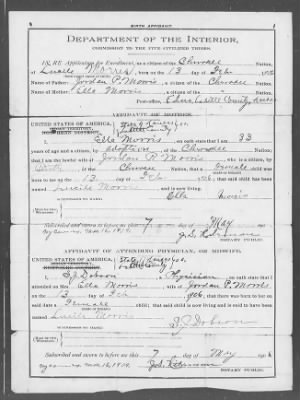 BIRTH AFFIDAVIT.
DEPARTMENT OF THE INTERIOR,
COMMISSION TO THE FIVE CIVILIZED TRIBES.
IN RE Application for Enrollment, as a citizen of the Cherokee Nation,
of Lucile Morris, born on the 13 day of Feb
Name of Father: Jordan P. Morris a citizen of the Cherokee Nation.
Name of Mother: Ella Morris a citizen of the Nation.
Post-office,
AFFIDAVIT OF MOTHER.
UNITED STATES OF AMERICA,
INDIAN TERRITORY,
DISTRICT.
I, Ella Morris on oath state that I am 33
years of age and a citizen, by adoption of the Cherokee Nation;
that I am the lawful wife of Jordan P. Morris, who is a citizen, by
Birth of the Cherokee Nation, that a female child was
born to me on 13 day of Feb, that said child has been
named Lucile Morris, and is now living.
Ella Morris
Subscribed and sworn to before me this 7 day of May
NOTARY PUBLIC.
AFFIDAVIT OF ATTENDING PHYSICIAN, OR MIDWIFE.
UNITED STATES OF AMERICA,
INDIAN TERRITORY,
DISTRICT.
I, S. J. Dobson, a Physician, on oath state that I
attended on Mrs. Ella Morris, wife of Jordan P. Morris
on the 13 day of Feb, that there was born to her on
said date a Female child; that said child is now living and is said to have been
named Lucile Morris
S. J. Dobson
Subscribed and sworn to before me this 7 day of May
NOTARY PUBLIC.